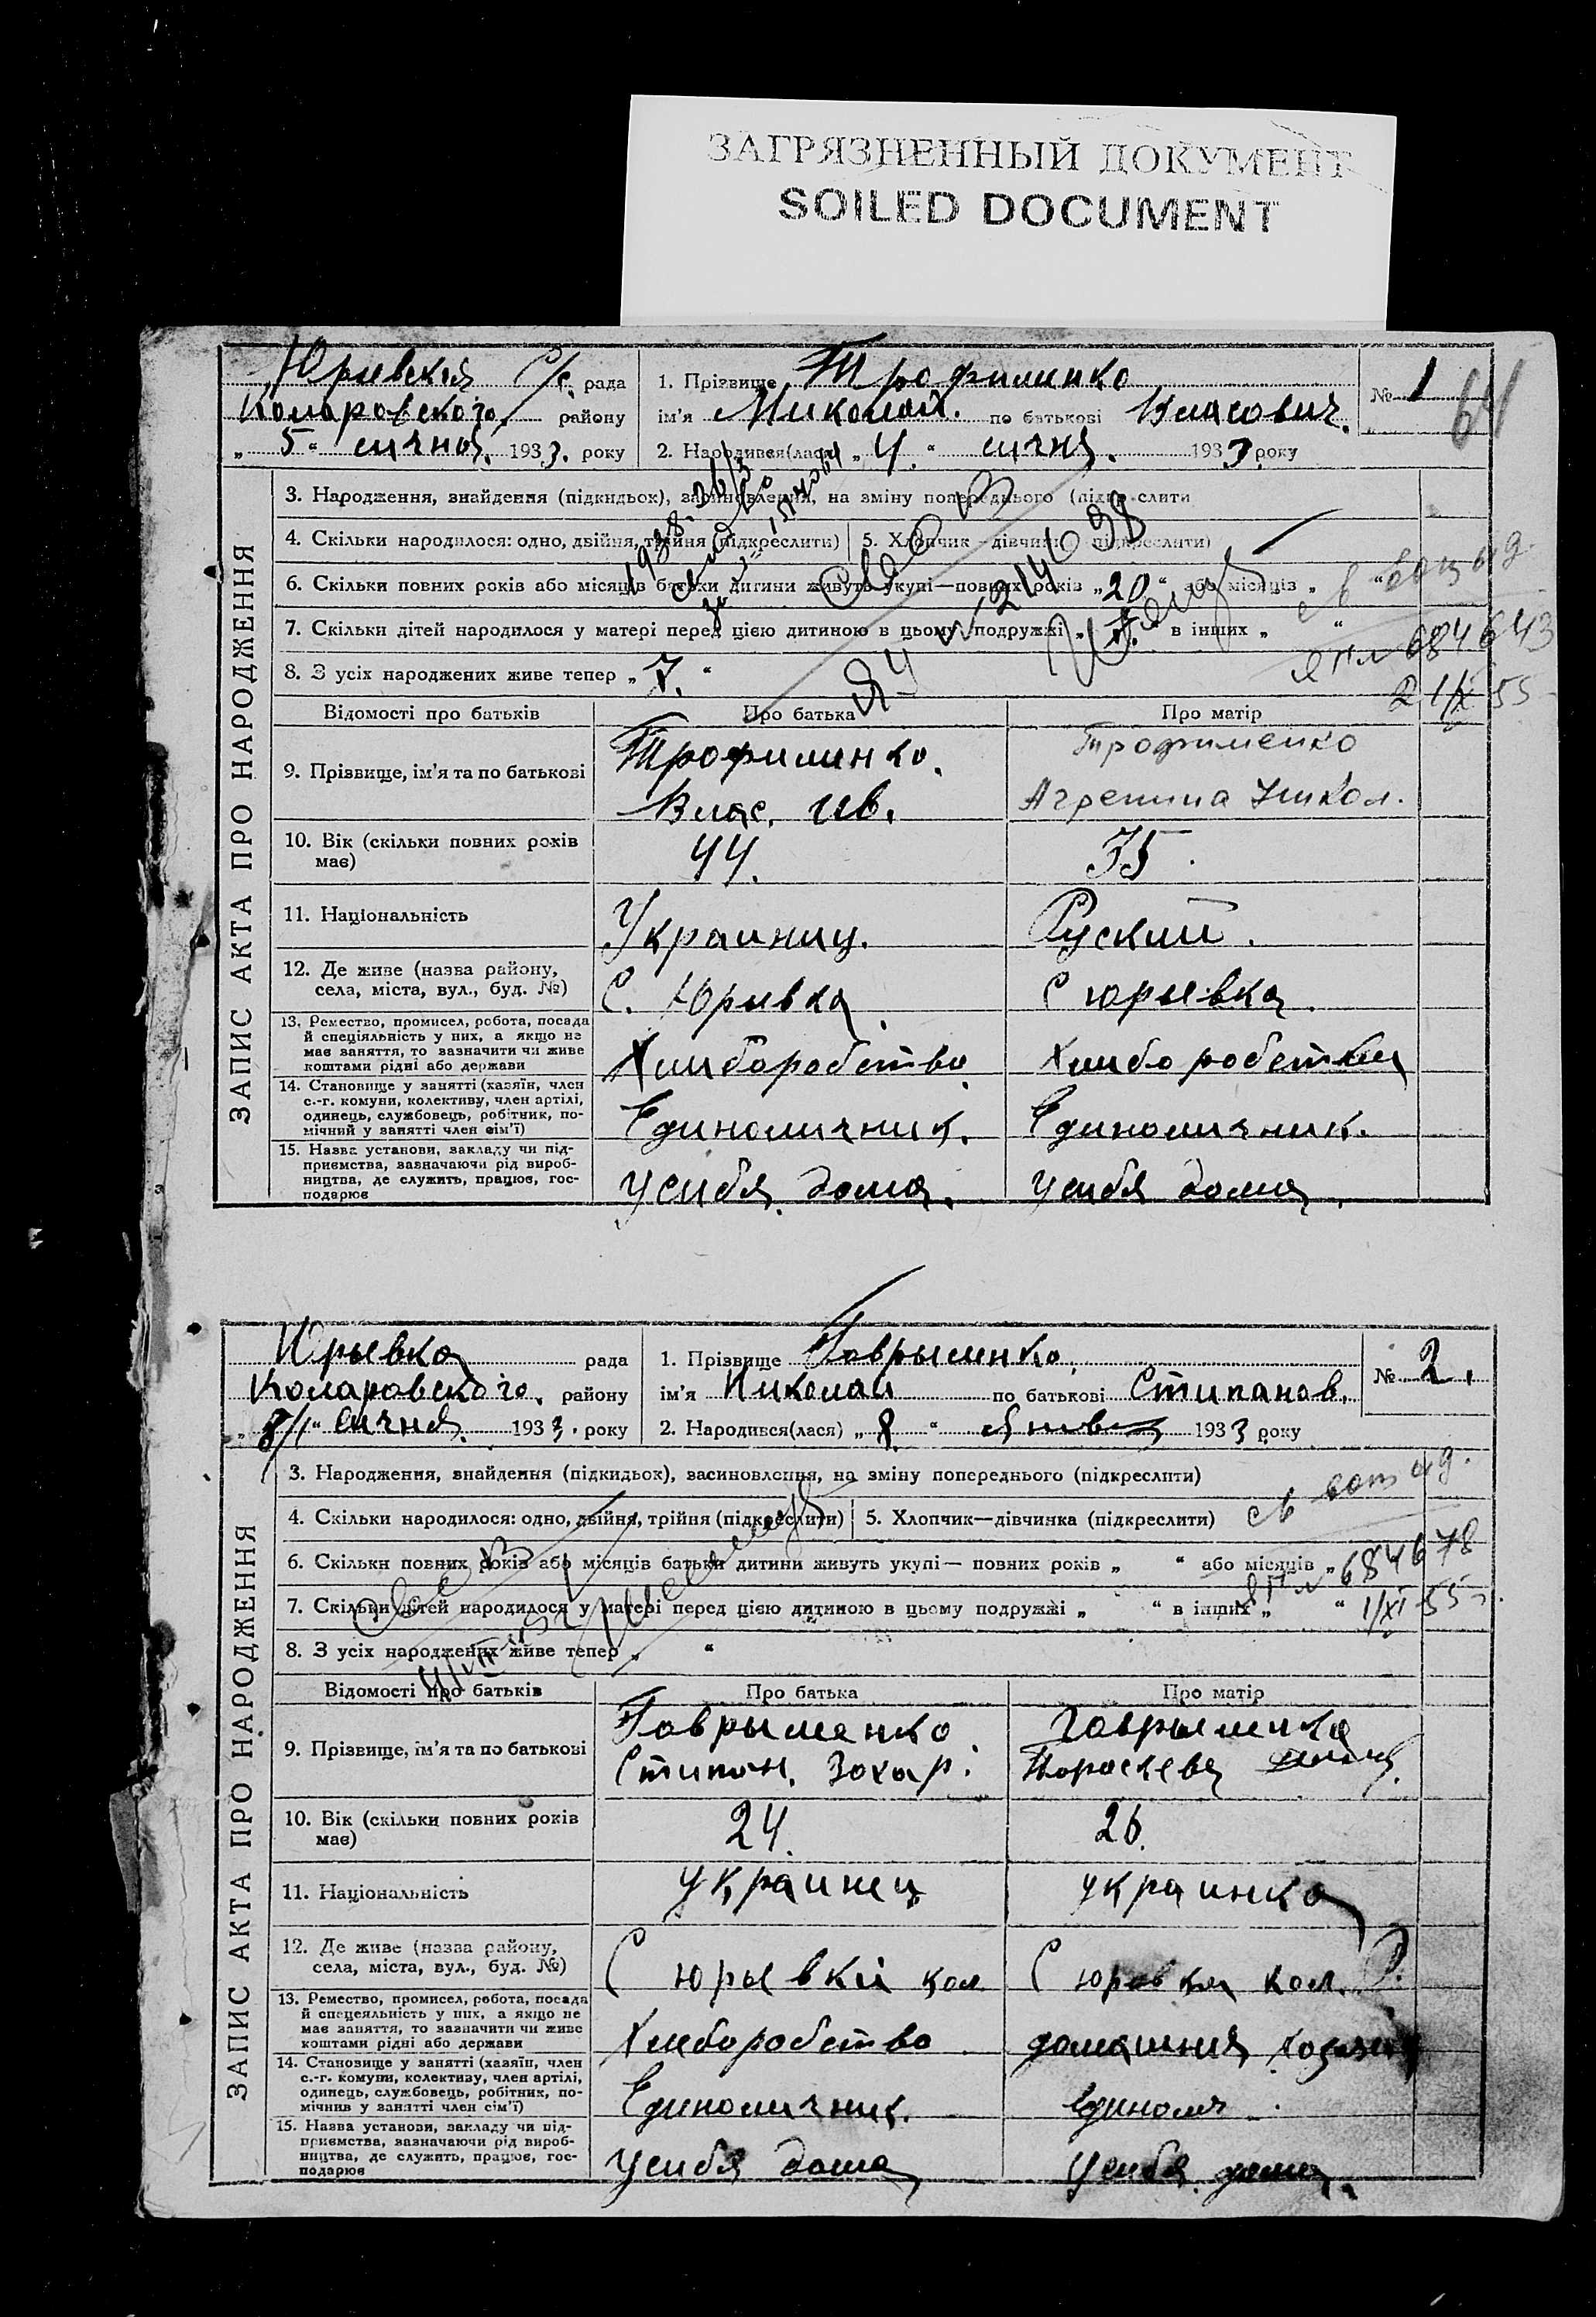 ЗАГРЯЗНЕННЫЙ ДОКУМЕНТ
SOILED DOCUMENT
64
ЗАПИС АКТА ПРО НАРОДЖЕННЯ
Юрьевская С/с. рада
Комаровского. району
„ 5 “ сичня. 1933. року
1. Прізвище Трофименко
ім'я Миколай. по батькові Власович.
№ 1
2. Народився(лася) „ 4. “ сичня. 1933 року
3. Народження, знайдення (підкидьок), засиновлення, на зміну попереднього (підкреслити
4. Скільки народилося: одно, двійня, трійня (підкреслити) 5. Хлопчик—дівчинка (підкреслити)
6. Скільки повних років або місяців батьки дитини живуть укупі—повних років „ 20 “ або місяців „ “
7. Скільки дітей народилося у матері перед цією дитиною в цьому подружжі „ “ в інших „ “
8. З усіх народжених живе тепер „ 7. “
684643
Відомості про батьків Про батька Про матір
9. Прізвище, ім'я та по батькові Трофименко. Влас. Ив. Трофименко Агрепина
10. Вік (скільки повних років має) 44. 35.
11. Національність Украиниц. Руский.
12. Де живе (назва району, села, міста, вул., буд. №) С. Юрывка С юрывка.
13. Ремество, промисел, робота, посада й спеціяльність у них, а якщо не має заняття, то зазначити чи живе коштами рідні або держави Хлиборобство
14. Становище у занятті (хазяїн, член с.-г. комуни, колективу, член артілі, одинець, службовець, робітник, помічний у занятті член сім'ї) Единоличник. Единоличник.
15. Назва установи, закладу чи підприємства, зазначаючи рід виробництва, де служить, працює, господарює Усибя дома. Усибя дома.
ЗАПИС АКТА ПРО НАРОДЖЕННЯ
Юрывка рада
Комаровского. району
„ 8/I “ сичня. 1933. року
1. Прізвище Гаврыленко.
ім'я Николай по батькові Стипанов.
№ 2.
2. Народився(лася) „ 8. “ 1933 року
3. Народження, знайдення (підкидьок), засиновлення, на зміну попереднього (підкреслити)
4. Скільки народилося: одно, двійня, трійня (підкреслити) 5. Хлопчик—дівчинка (підкреслити)
6. Скільки повних років або місяців батьки дитини живуть укупі— повних років „ “ або місяців „
684678
7. Скільки дітей народилося у матері перед цією дитиною в цьому подружжі „ “ в інших „ “
1/XI 55
8. З усіх народжених живе тепер „ “
Відомості про батьків Про батька Про матір
9. Прізвище, ім'я та по батькові Гаврыленко Стипан. Захар. Гаврыленко
10. Вік (скільки повних років має) 24. 26.
11. Національність украинец украинка
12. Де живе (назва району, села, міста, вул., буд. №) С юрывки ком С юрывки ком. Р.
13. Ремество, промисел, робота, посада й спецеяльність у них, а якщо не має заняття, то зазначити чи живе коштами рідні або держави Хлиборобство домашния
14. Становище у занятті (хазяїн, член с.-г. комуни, колективу, член артілі, одинець, службовець, робітник, помічний у занятті член сім'ї) Единоличник. Единолич.
15. Назва установи, закладу чи підприємства, зазначаючи рід виробництва, де служить, працює, господарює Усибя дома Усибя дома.